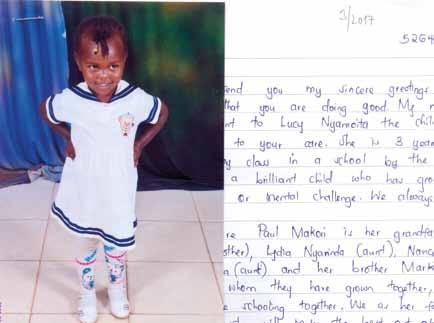 3/2017
5264
end you my sincere greetings
that you are doing good. My n
nt to Lucy Nyamoita the child
to your care. She is 3 years
y class in a school by the
a brilliant child who has gro
or mental challenge. We always
re Paul Makori is her grandfa
other), Lydia Nyarinda (aunt), Nanc
a (aunt) and her brother Mark
whom they have grown together,
e schooting together. We as her f